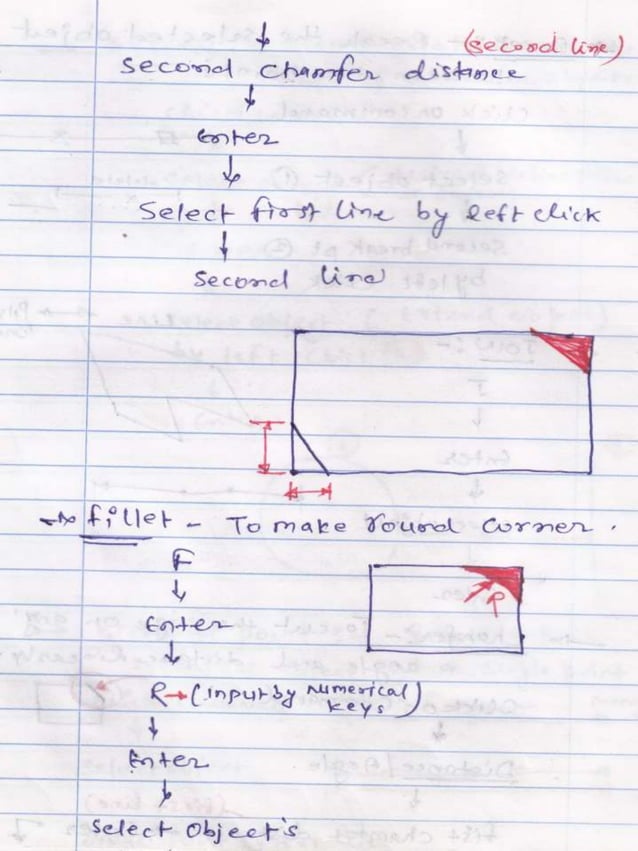 (second line)
second chamfer distance
Enter
Select first line by left click
second line
fillet - To make round corner.
F
Enter
R
R → (input by numerical keys)
Enter
Select object's